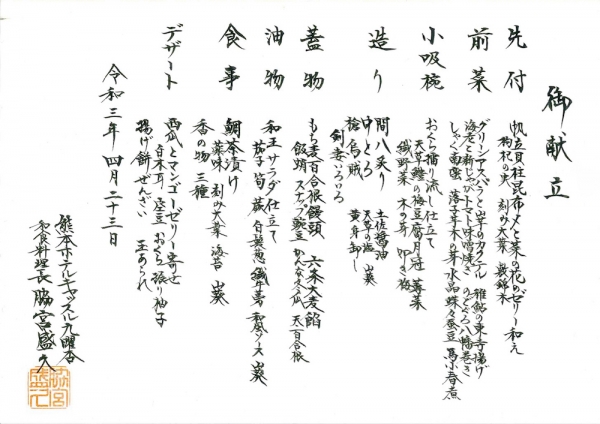 御献立
先付
帆立貝杜昆布〆と菜の花のゼリー和え
枸杞の実 刻み大葉
前菜
グリーンアスパラと山芋のカクテル 稚鮎の東寺揚げ
海老と新じゃがトマト味噌焼き のどぐろ八幡巻き
しゃく南蛮 木の芽 水晶 蝶々蚕豆 小春煮
小吸椀
おくら摺り流し仕立て
天草鯛の梅豆腐 月冠 蓴菜
木の芽 叩き梅
造り
間八炙り 土佐醤油
中とろ 天草の塩 山葵
槍烏賊 黄身卸し
剣妻いろいろ
蓋物
もち麦百合根饅頭 六条大麦餡
飯蛸 スナップ豌豆 天百合根
油物
和王サラダ仕立て
茄子 筍 蕨 白髪葱 牛蒡 和風ソース 山葵
食事
鯛茶漬け
薬味 刻み大葉 海苔 山葵
香の物 三種
デザート
西瓜とマンゴーゼリー寄せ
白木耳 おくら 振り柚子
揚げ餅ぜんざい 玉あられ
令和三年 四月二十三日
熊本ホテルキャッスル九曜杏
和食料理長 脇宮盛久